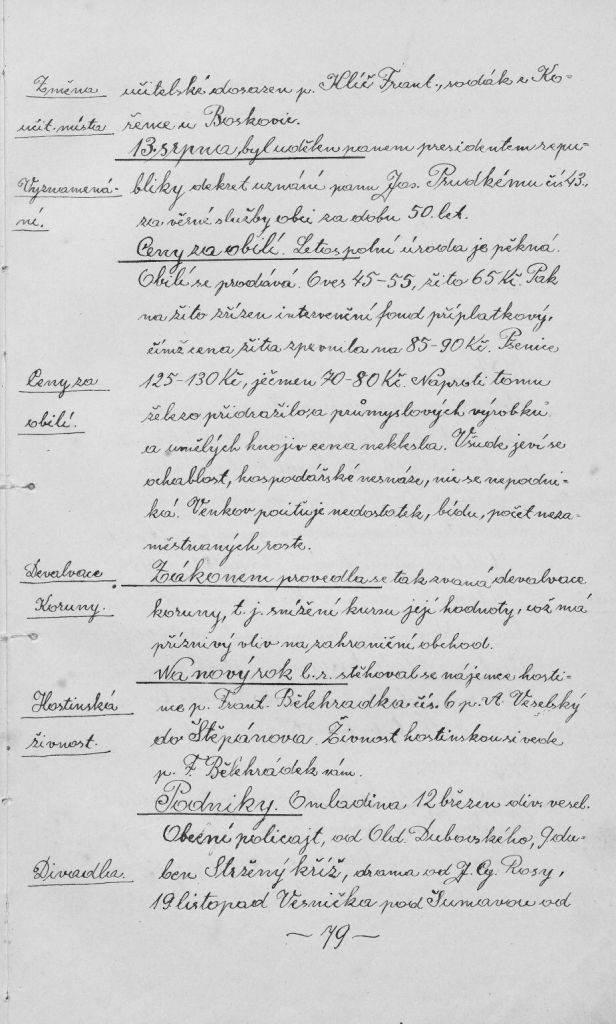 Změna učitelské dosazen p. Klíč Frant., rodák z Ko-
učit. místa řence u Boskovic.
13. srpna, byl udělen panem presidentem repu-
Vyznamená- bliky, dekret uznání panu Jos. Prudkému čís 43.
ní. za věrné služby obci za dobu 50. let.
Ceny za obilí. Letos polní úroda je pěkná.
Obilí se prodává. Oves 45-55, žito 65 Kč. Pak
na žito zřízen intervenční fond příplatkový,
čímž cena žita zpevnila na 85-90 Kč. Pšenice
Ceny za 125-130 Kč, ječmen 70-80 Kč. Naproti tomu
obilí. železo přidražilo, a průmyslových výrobků
a umělých hnojiv cena neklesla. Všude jeví se
ochablost, hospodářské nesnáze, nic se nepodni-
ká. Venkov pociťuje nedostatek, bídu, počet neza-
městnaných roste.
Devalvace Zákonem provedla se tak zvaná devalvace
Koruny. koruny, t. j. snížení kursu její hodnoty, což má
příznivý vliv na zahraniční obchod.
Na nový rok b. r. stěhoval se nájemce hosti-
Hostinská nce p. Frant. Bělehradka čís. 6 p. A. Veselský
živnost. do Štěpánova. Živnost hostinskou si vede
p. F. Bělehrádek sám.
Podniky. Omladina 12 březen div. vesel.
Obecní policajt, od Old. Dubovského, 9 du-
Divadla. ben Stržený kříž, drama od J. Cy. Rosy,
19 listopad Vesnička pod Šumavou od
— 79 —